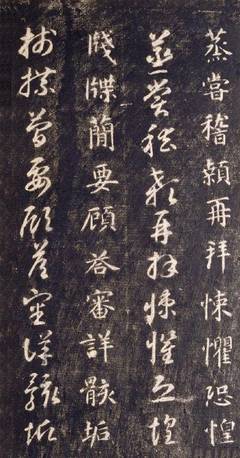 蒸嘗稽顙再拜悚懼恐惶
蒸嘗稽顙再拜悚懼恐惶
牋牒簡要顧答審詳骸垢
牋牒簡要顧答審詳骸垢